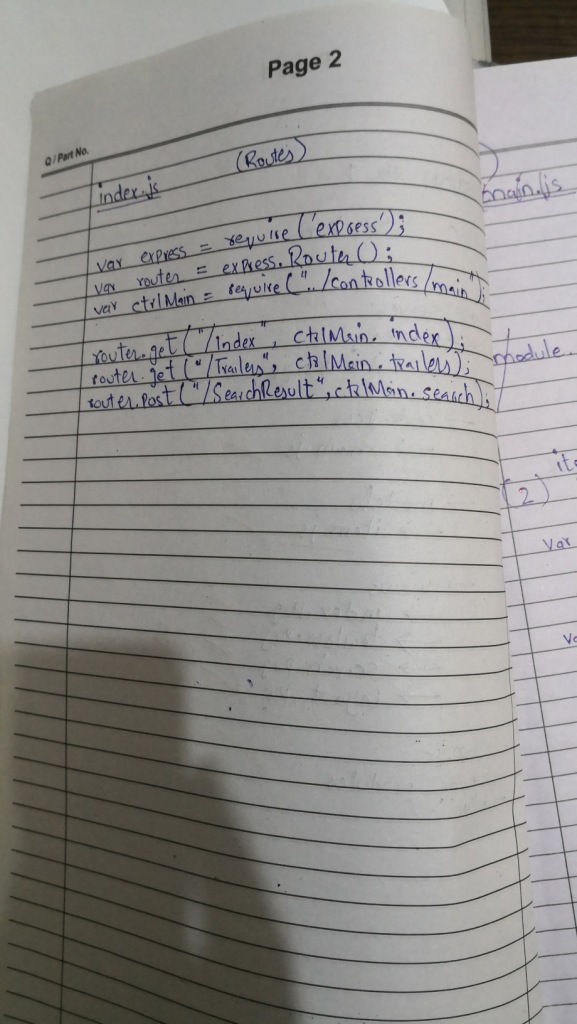 Page 2
Q / Part No.
(Routes)
index.js
var express = require('express');
var router = express.Router();
var ctrlMain = require("../controllers/main");
router.get("/index", ctrlMain.index);
router.get("/Trailers", ctrlMain.trailers);
router.post("/SearchResult", ctrlMain.search);
main.js
module.
(2)
var